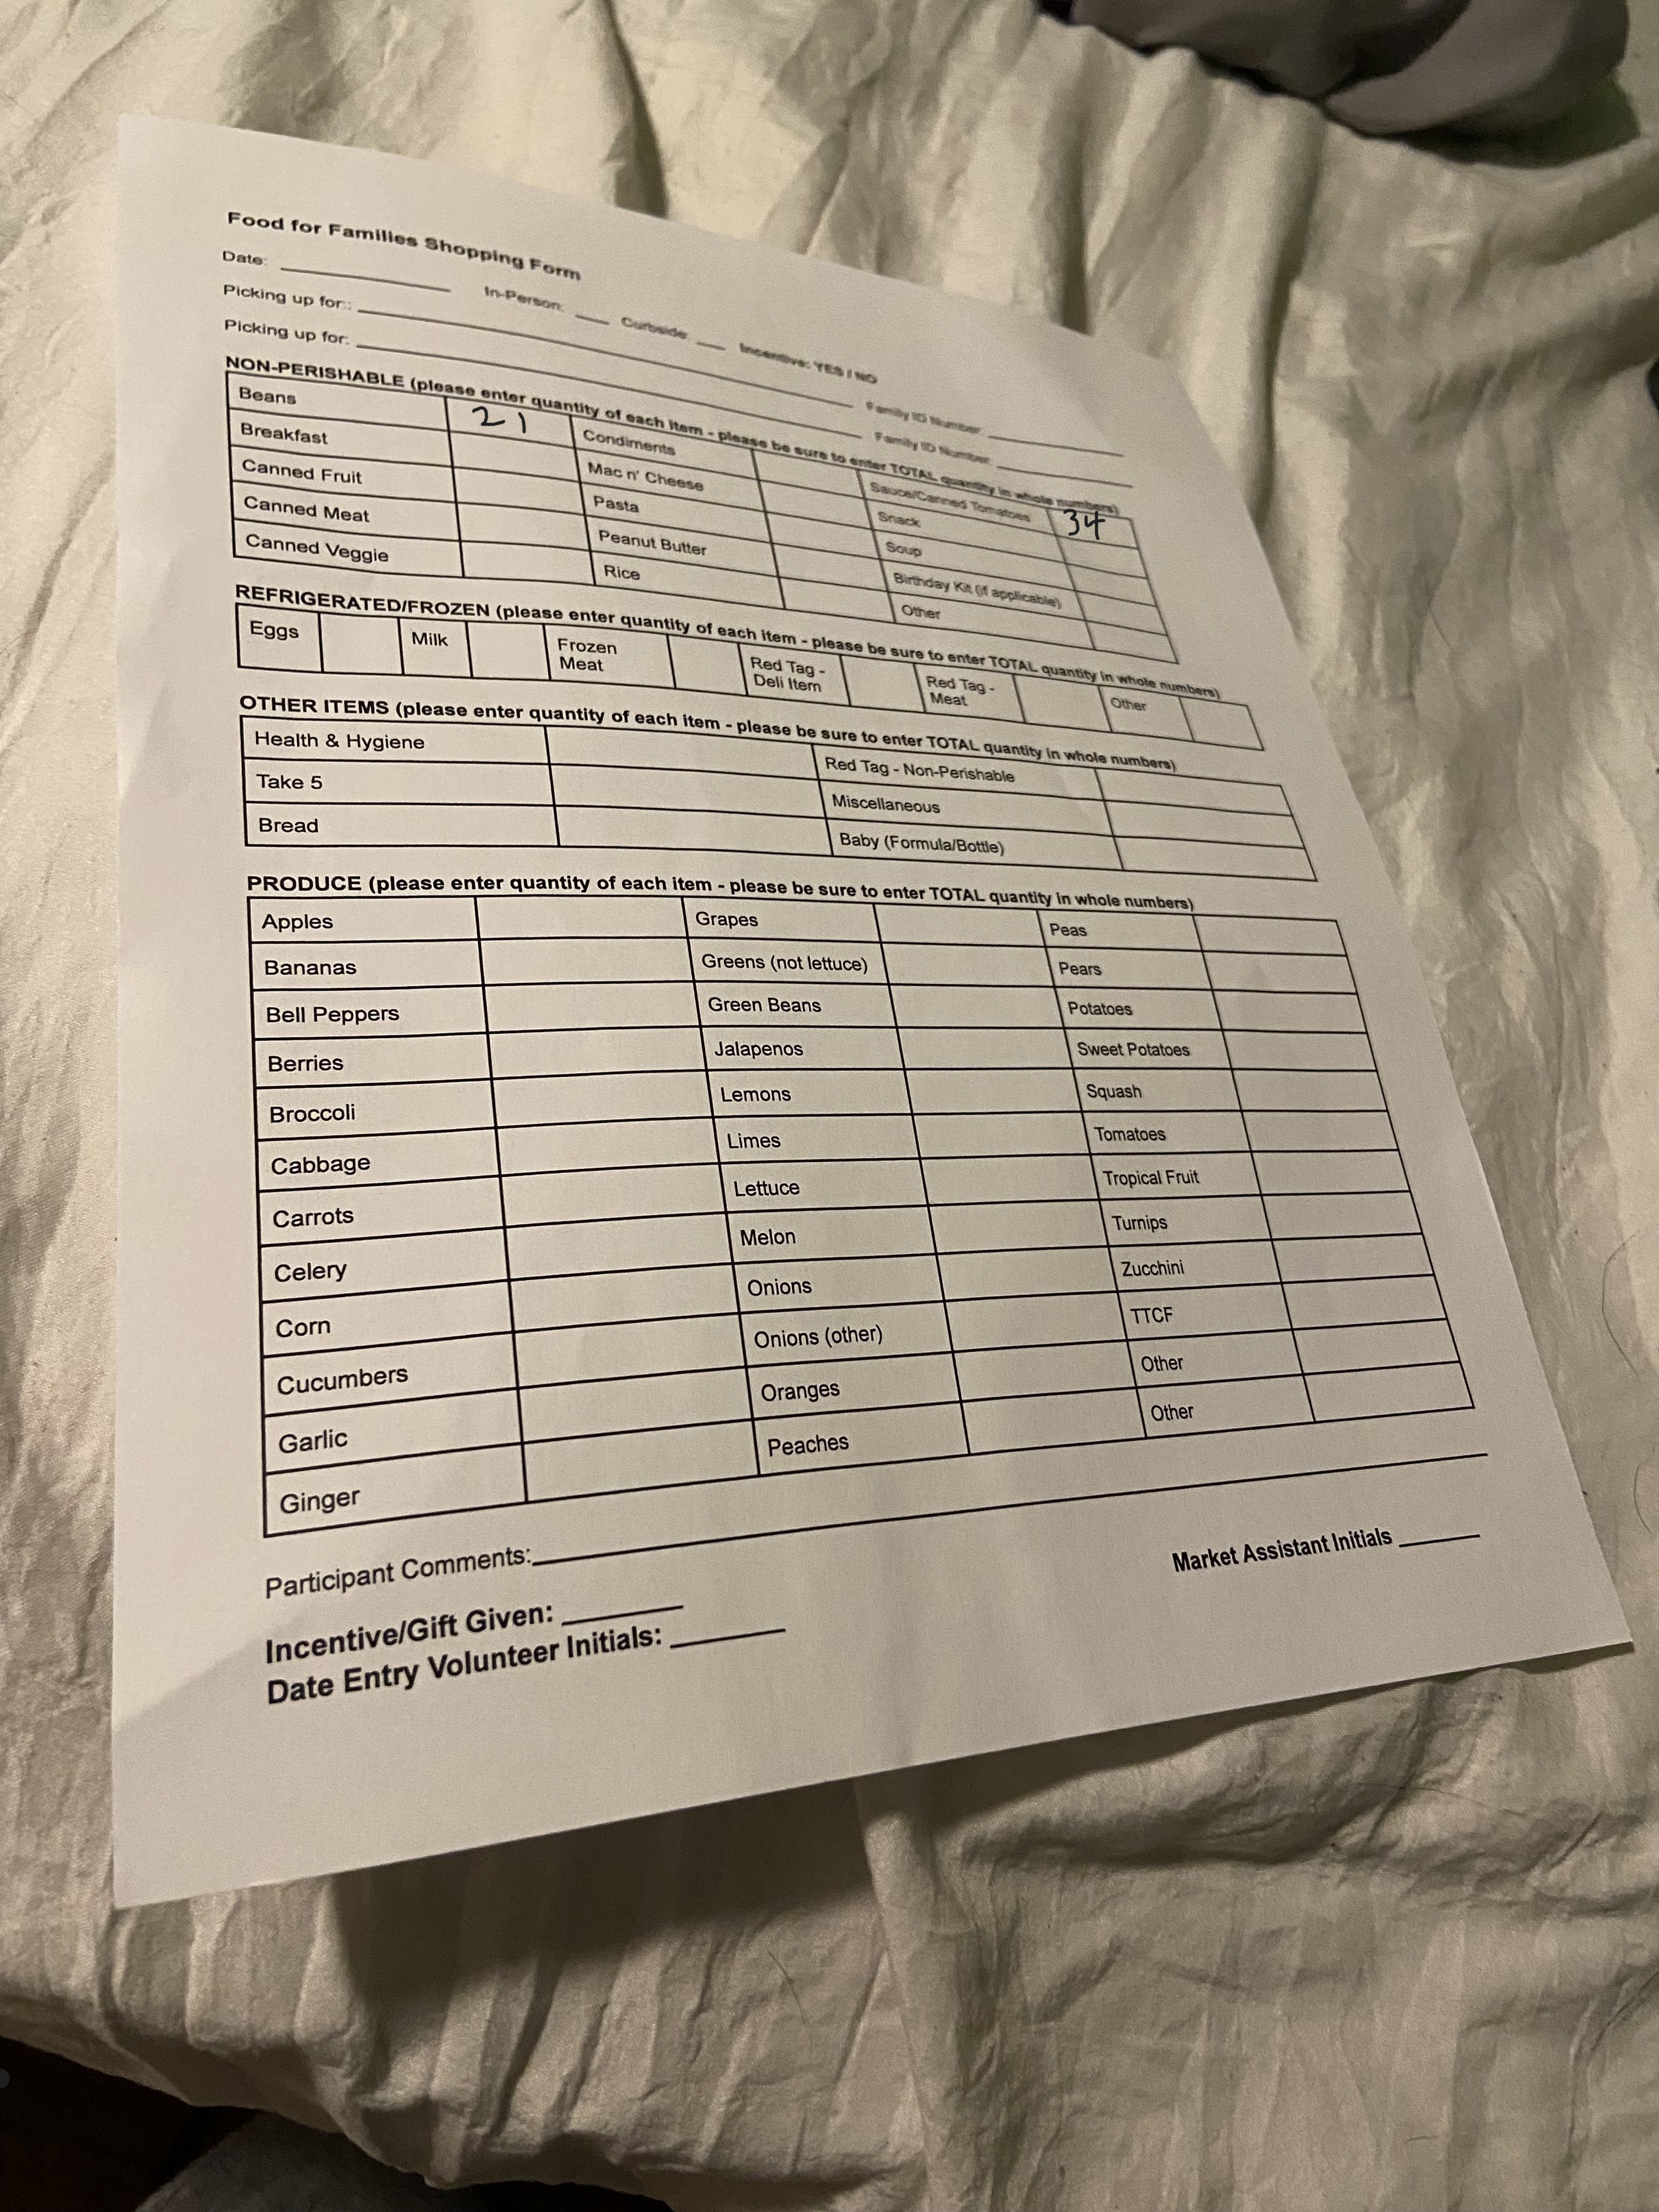 Food for Families Shopping Form
Date: In-Person: Curbside: Incentive: YES / NO
Picking up for:: Family ID Number:
Picking up for: Family ID Number:
NON-PERISHABLE (please enter quantity of each item - please be sure to enter TOTAL quantity in whole numbers)
Beans 21 Condiments Sauce/Canned Tomatoes 34
Breakfast Mac n' Cheese Snack
Canned Fruit Pasta Soup
Canned Meat Peanut Butter Birthday Kit (if applicable)
Canned Veggie Rice Other
REFRIGERATED/FROZEN (please enter quantity of each item - please be sure to enter TOTAL quantity in whole numbers)
Eggs Milk Frozen Red Tag - Red Tag - Other
Meat Deli Item Meat
OTHER ITEMS (please enter quantity of each item - please be sure to enter TOTAL quantity in whole numbers)
Health & Hygiene Red Tag - Non-Perishable
Take 5 Miscellaneous
Bread Baby (Formula/Bottle)
PRODUCE (please enter quantity of each item - please be sure to enter TOTAL quantity in whole numbers)
Apples Grapes Peas
Bananas Greens (not lettuce) Pears
Bell Peppers Green Beans Potatoes
Berries Jalapenos Sweet Potatoes
Broccoli Lemons Squash
Cabbage Limes Tomatoes
Carrots Lettuce Tropical Fruit
Celery Melon Turnips
Corn Onions Zucchini
Cucumbers Onions (other) TTCF
Garlic Oranges Other
Ginger Peaches Other
Participant Comments:
Market Assistant Initials
Incentive/Gift Given:
Date Entry Volunteer Initials: